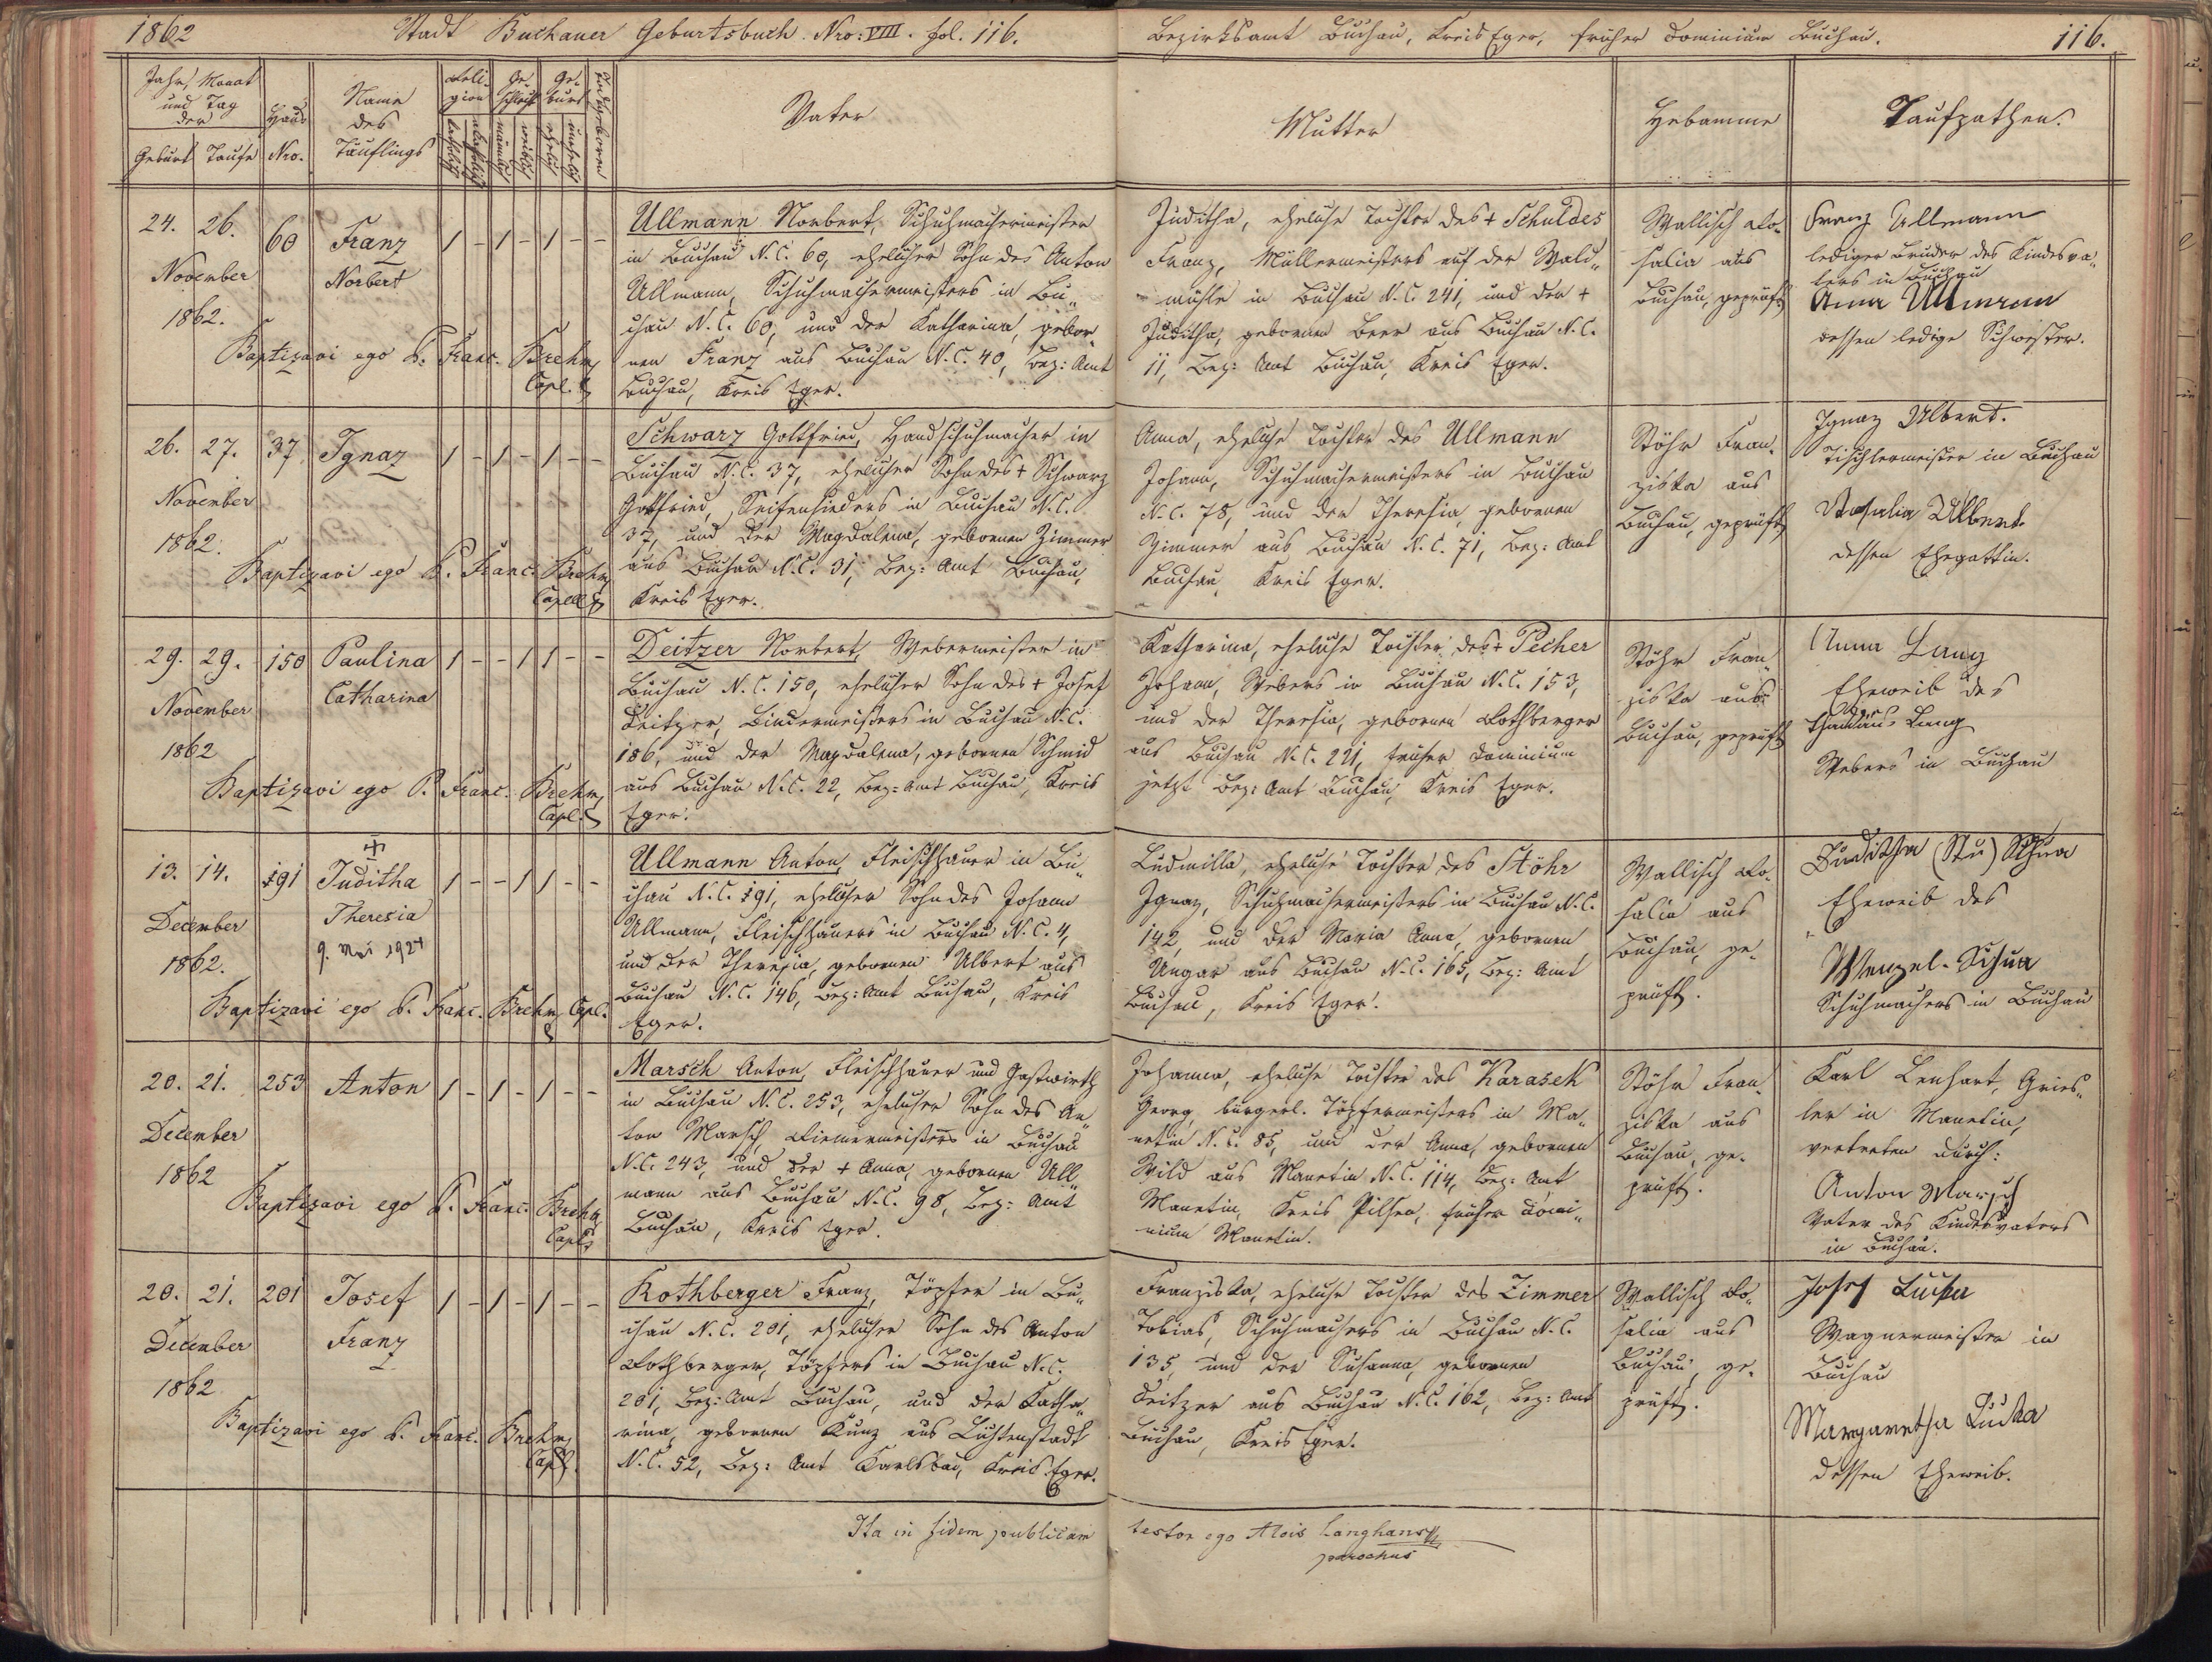 1862 Stadt Buchauer Geburtsbuch. Nro: VIII. fol. 116.
Bezirksamt Buchau, Kreis Eger, früher Dominium Buchau. 116.
Jahr, Monat
und Tag
der
Geburt Taufe
Haus
Nro.
Name
des
Täuflings
Reli-
gion
katholisch
akatholisch
Ge-
schlecht
männlich
weiblich
Ge-
burt
ehelich
unehelich
Todtgeboren
Vater
Mutter
Hebamme
Taufpathen.
24. 26.
November
1862.
60
Franz
Norbert
1 - 1 - 1 - -
Baptizavi ego P. Franc. Brehm,
Capl.
Ullmann Norbert, Schuhmachermeister
in Buchau N.C. 60, ehelicher Sohn des Anton
Ullmann, Schuhmachermeisters in Bu„
chau N.C. 60, und der Katharina, gebor„
nen Franz aus Buchau N.C. 40, Bez: Amt
Buchau, Kreis Eger.
Juditha, eheliche Tochter des + Schuldes
Franz, Müllermeisters auf der Wald„
mühle in Buchau N.C. 241, und der +
Juditha, gebornen Beer aus Buchau N.C.
11, Bez: Amt Buchau, Kreis Eger.
Wallisch Ro-
salia aus
Buchau, geprüft
Franz Ullmann
lediger Bruder des Kindesva„
ters in Buchau
Anna Ullmann
dessen ledige Schwester.
26. 27.
November
1862.
37
Ignaz
1 - 1 - 1 - -
Baptizavi ego P. Franc. Brehm,
Capell
Schwarz Gottfried, Handschuhmacher in
Buchau N.C. 37, ehelicher Sohn des + Schwarz
Gottfried, Seifensieders in Buchau N.C.
37, und der Magdalena, gebornen Zimmer
aus Buchau N.C. 31, Bez: Amt Buchau,
Kreis Eger.
Anna, eheliche Tochter des Ullmann
Johann, Schuhmachermeisters in Buchau
N.C. 78, und der Theresia, gebornen
Zimmer aus Buchau N.C. 71, Bez: Amt
Buchau, Kreis Eger.
Stöhr Fran-
ziska aus
Buchau, geprüft
Ignaz Ulbert.
Tischlermeister in Buchau
Rosalia Ulbert.
dessen Ehegattin.
29. 29.
November
1862
150
Paulina
Catharina
1 - - 1 1 - -
Baptizavi ego P. Franc. Brehm,
Capl.
Deitzer Norbert, Webermeister in
Buchau N.C. 150, ehelicher Sohn des + Josef
Deitzer, Bindermeisters in Buchau N.C.
186, und der Magdalena, gebornen Schmid
aus Buchau N.C. 22, Bez: Amt Buchau, Kreis
Eger.
Katharina, eheliche Tochter des + Pecher
Johann, Webers in Buchau N.C. 153,
und der Theresia, gebornen Rothberger
aus Buchau N.C. 221, früher Dominium
jetzt Bez: Amt Buchau, Kreis Eger.
Stöhr Fran„
ziska aus
Buchau, geprüft
Anna Lang
Eheweib des
Lang
Webers in Buchau
13. 14.
December
1862.
191
Juditha
Theresia
9. Mai 1924
1 - - 1 1 - -
Baptizavi ego P. Franc. Brehm, Capl.
Ullmann Anton, Fleischhauer in Bu„
chau N.C. 191, ehelicher Sohn des Johann
Ullmann, Fleischhauers in Buchau N.C. 4,
und der Theresia, gebornen Ulbert aus
Buchau N.C. 146, Bez: Amt Buchau, Kreis
Eger.
Ludmilla, eheliche Tochter des Stöhr
Ignaz, Schuhmachermeisters in Buchau N.C.
142, und der Maria Anna, gebornen
Ungar aus Buchau N.C. 165, Bez: Amt
Buchau, Kreis Eger.
Wallisch Ro-
salia aus
Buchau, ge-
prüft.
Juditha Schua
Eheweib des
Wenzel Schua
Schuhmachers in Buchau
20. 21.
December
1862
253
Anton
1 - 1 - 1 - -
Baptizavi ego P. Franc. Brehm
Capl
Marsch Anton, Fleischhauer und Gastwirth
in Buchau N.C. 253, ehelicher Sohn des An„
ton Marsch, Riemermeisters in Buchau
N.C. 243, und der + Anna, gebornen Ull„
mann aus Buchau N.C. 98, Bez: Amt
Buchau, Kreis Eger.
Johanna, eheliche Tochter des Karasek
Georg, bürgerl. Töpfermeisters in Ma„
netin N.C. 85, und der Anna, gebornen
Wild aus Manetin N.C. 114, Bez: Amt
Manetin, Kreis Pilsen, früher Domi„
nium Manetin.
Stöhr Fran-
ziska aus
Buchau, ge-
prüft.
Karl Lenhart, Gries„
ler in Manetin,
vertreten durch:
Anton Marsch
Vater des Kindesvaters
in Buchau.
20. 21.
December
1862
201
Josef
Franz
1 - 1 - 1 - -
Baptizavi ego P. Franc. Brehm,
Capl.
Rothberger Franz, Töpfer in Bu„
chau N.C. 201, ehelicher Sohn des Anton
Rothberger, Töpfers in Buchau N.C.
201, Bez: Amt Buchau, und der Katha„
rina, gebornen Kunz aus Lichtenstadt
N.C. 52, Bez: Amt Karlsbad, Kreis Eger.
Franziska, eheliche Tochter des Zimmer
Tobias, Schuhmachers in Buchau N.C.
135, und der Susanna, gebornen
Deitzer aus Buchau N.C. 162, Bez: Amt
Buchau, Kreis Eger.
Wallisch Ro-
salia aus
Buchau, ge-
prüft.
Josef Lucka
Wagnermeister in
Buchau
Margaretha Lucka
dessen Eheweib.
Ita in fidem publicam testor ego Alois Langhans
parochus